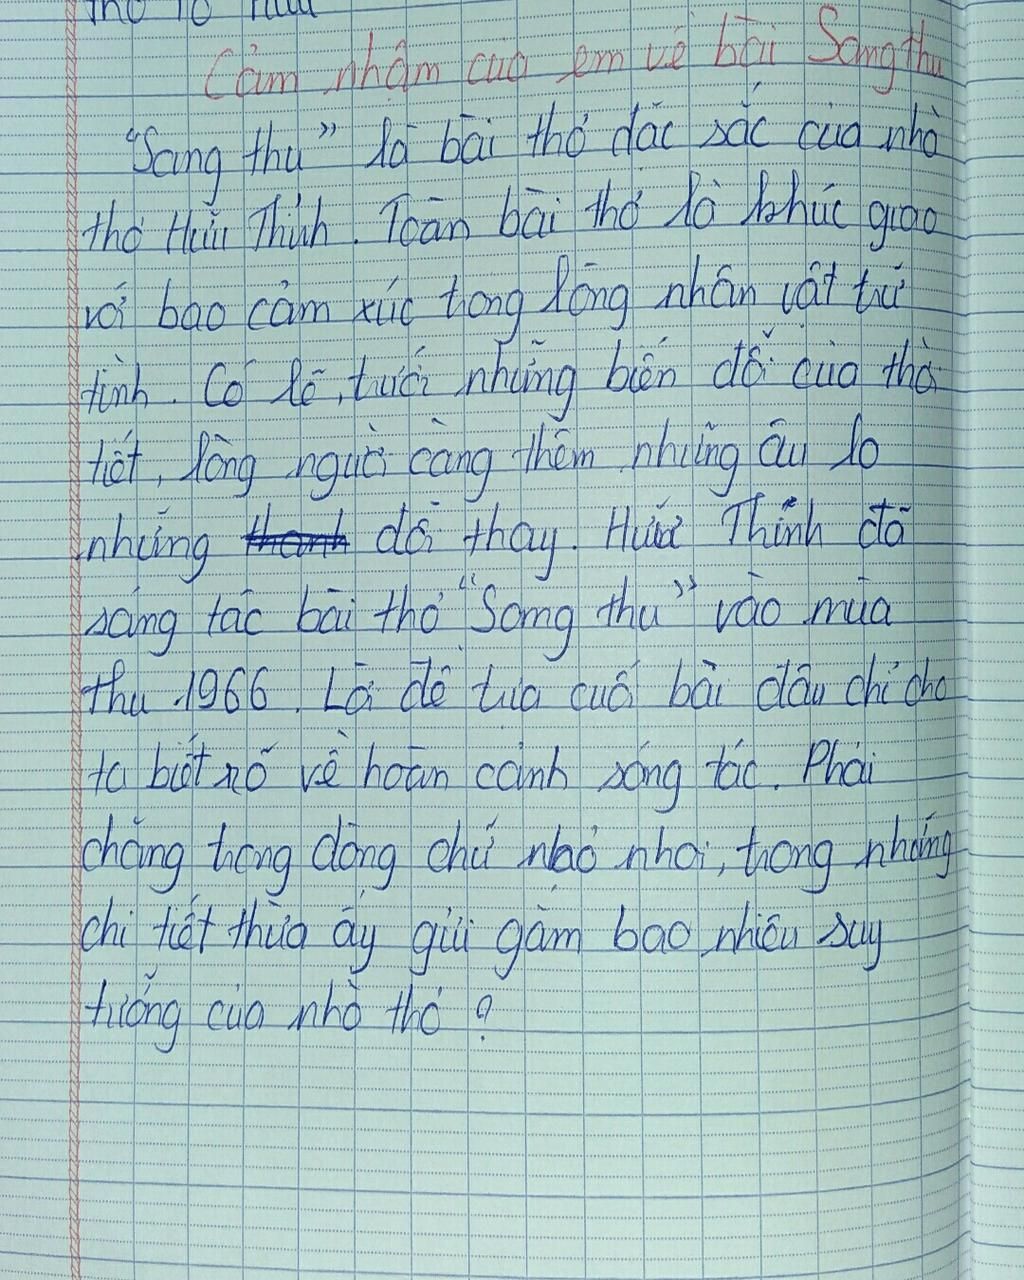 Cảm nhận của em về bài Sang thu
"Sang thu" là bài thơ đặc sắc của nhà
thơ Hữu Thỉnh. Toàn bài thơ là khúc giao
với bao cảm xúc trong lòng nhân vật trữ
tình. Có lẽ, trước những biến đổi của thời
tiết, lòng người càng thêm những âu lo
những thanh đổi thay. Hữu Thỉnh đã
sáng tác bài thơ "Sang thu" vào mùa
thu 1966. Lời đề tựa cuối bài đâu chỉ cho
ta biết rõ về hoàn cảnh sáng tác. Phải
chăng trong dòng chữ nhỏ nhoi, trong những
chi tiết thừa ấy gửi gắm bao nhiêu suy
tưởng của nhà thơ ?